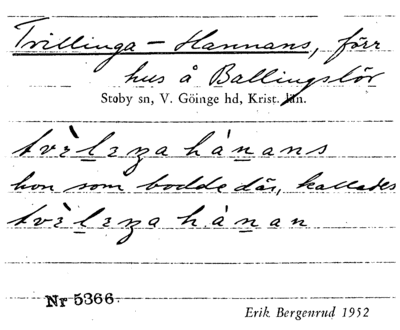 Tvillinga-Hannans, förr
hus å Ballingslöv
Stoby sn, V. Göinge hd, Krist. län.
tvìlɩŋa hànans
hon som bodde där, kallades
tvìlɩŋa hànan
Nr 5366.
Erik Bergenrud 1952